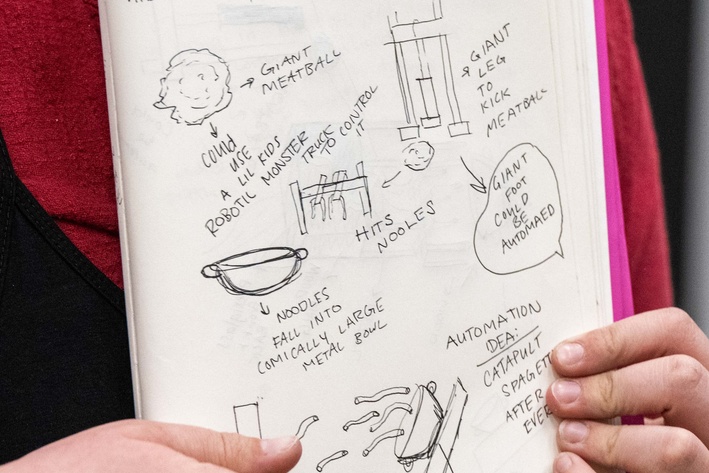 GIANT
MEATBALL
GIANT
LEG
TO
KICK
MEATBALL
COULD
USE
A LIL KIDS
ROBOTIC MONSTER
TRUCK TO CONTROL
IT
GIANT
FOOT
COULD
BE
AUTOMAED
HITS
NOOLES
NOODLES
FALL INTO
COMICALLY LARGE
METAL BOWL
AUTOMATION
IDEA:
CATAPULT
AFTER